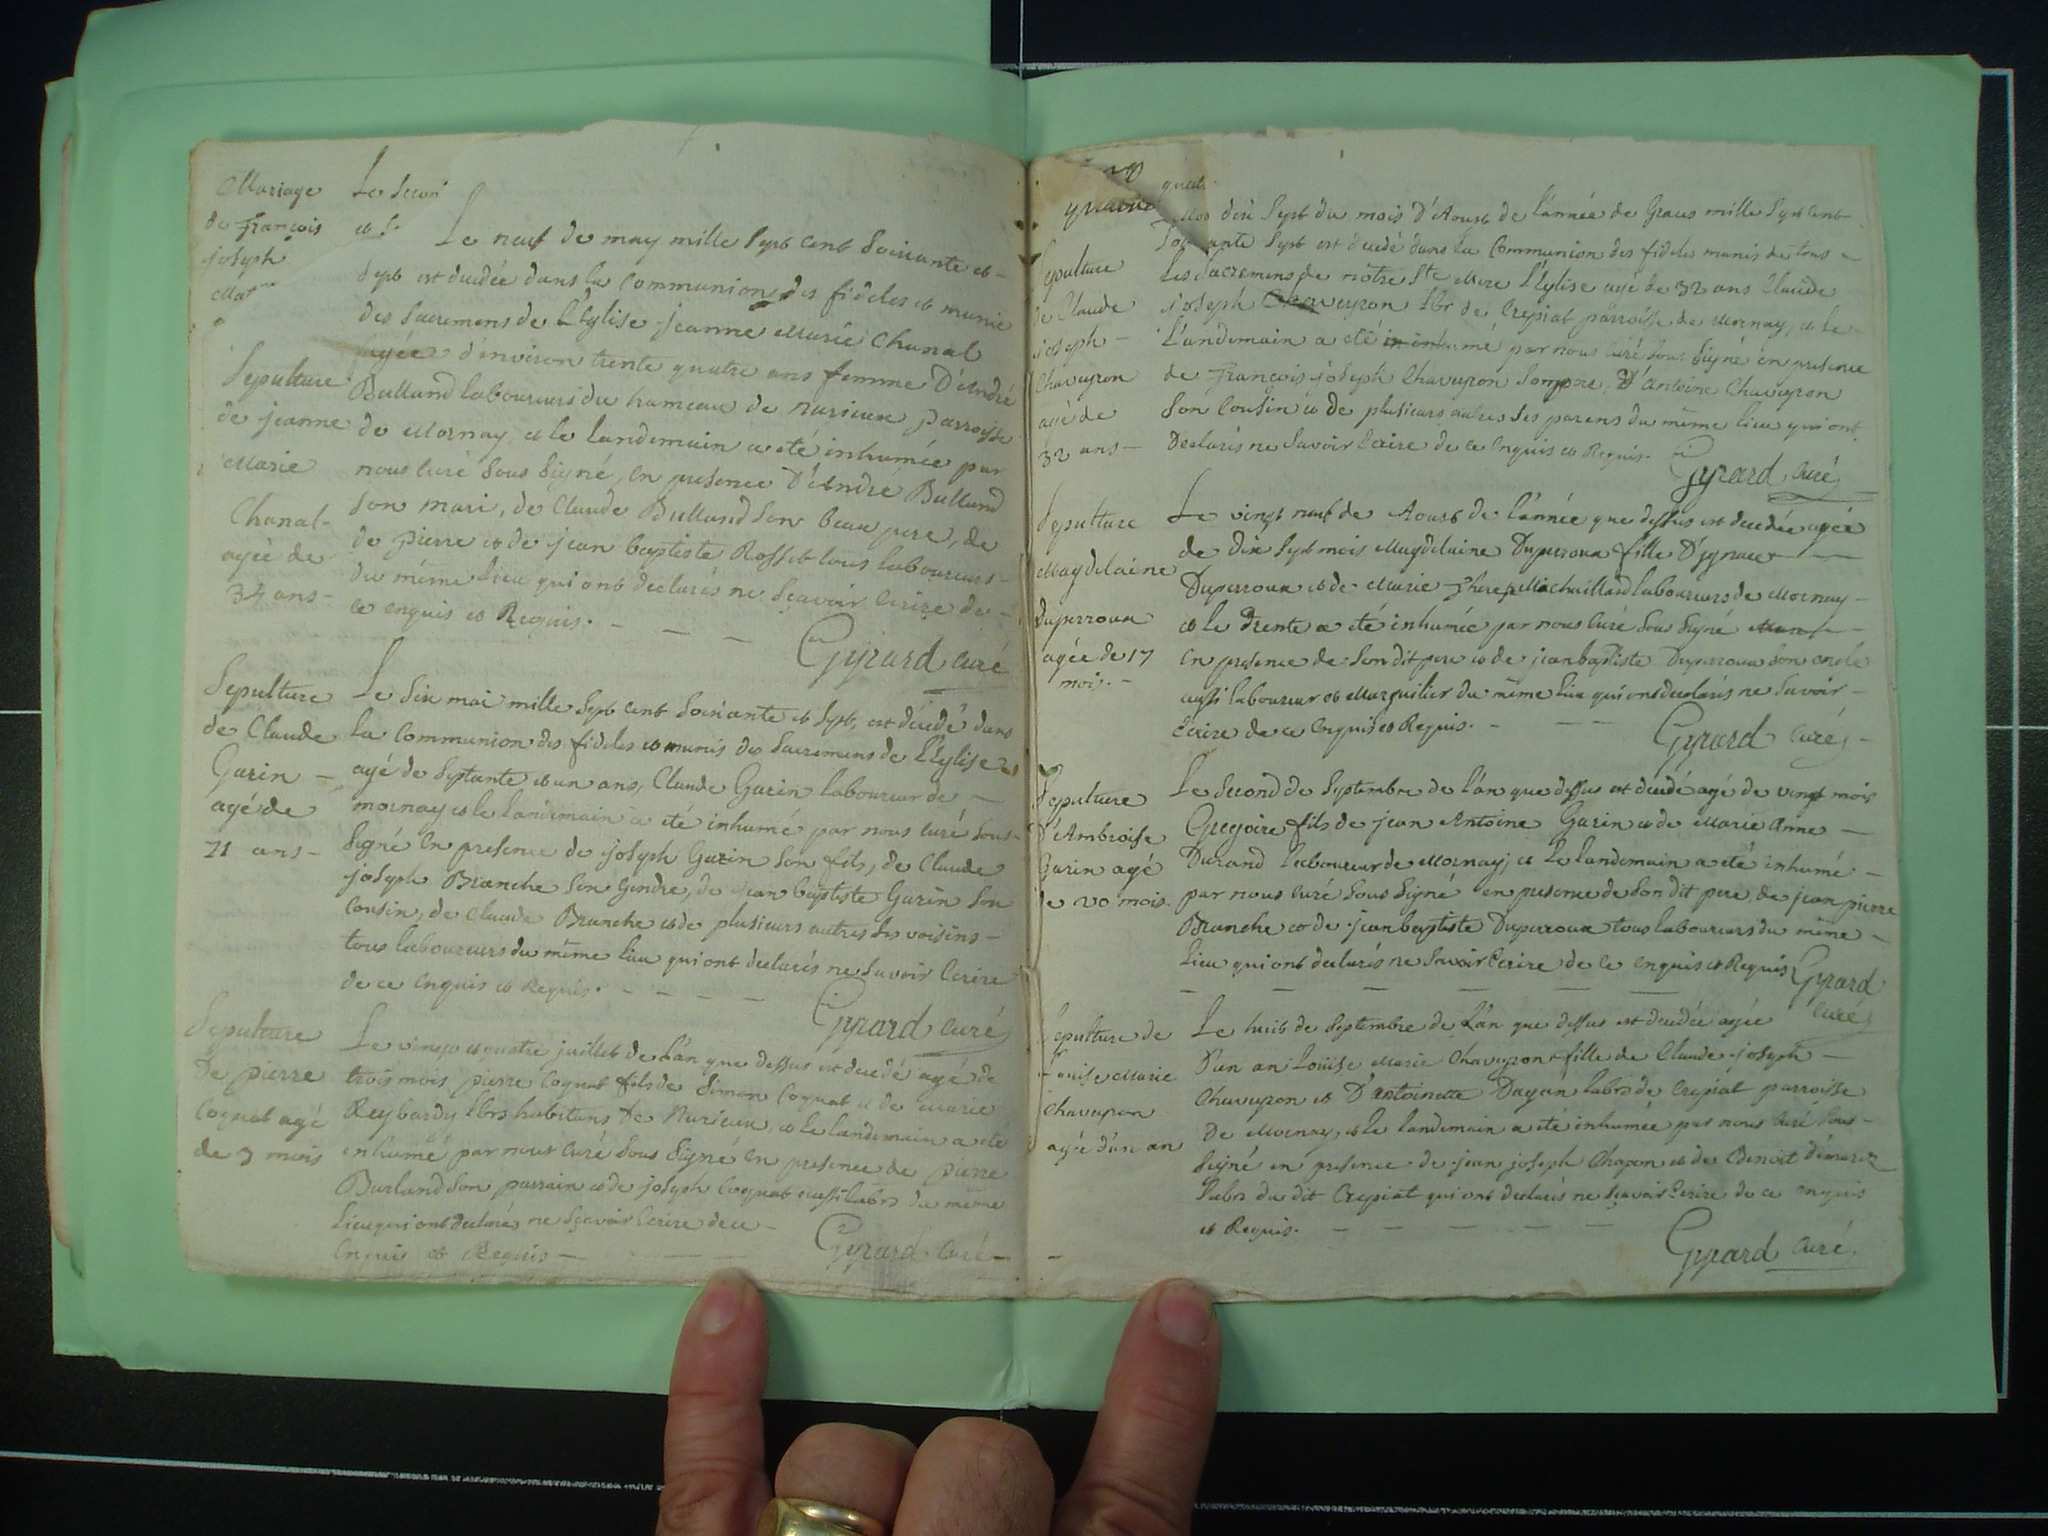 Mariage
de François
joseph
Mat
Le Secon
et S.
Sepulture
de jeanne
Marie
Chanal
agée de
34 ans
Le neuf de may mille Sept cent Soixante et
Sept est decedée dans la Communion des fideles et munie
des Sacremens de L'Eglise jeanne Marie Chanal
agée d'environ trente quatre ans femme D'André
Bulland laboureurs du hameau de nurieux parroisse
de Mornay et le landemain a eté inhumée par
nous Curé Sous Signé, en presence D'André Bulland
Son mari, de Claude Bulland Son beau pere, de
de pierre et de jean baptiste Rosset tous laboureurs
du même Lieu qui ont declarés ne Sçavoir Ecrire de
ce enquis et Requis.
Gyrard curé
Sepulture
de Claude
Garin
agé de
71 ans
Le Six mai mille Sept cent Soixante et Sept, est décedé dans
la Communion des fideles et munis des Sacremens de L'Eglise
agé de Septante et un ans, Claude Garin laboureur de
mornay et le landemain a eté inhumé par nous Curé Sous
Signé En presence de joseph Garin Son fils, de Claude
joseph Branche Son Gendre, de jean baptiste Garin Son
Cousin, de Claude Branche et de plusieurs autres Ses voisins
tous laboureurs du même lieu qui ont declarés ne Savoir Ecrire
de ce Enquis et Requis.
Gyrard curé
Sepulture
De pierre
Coquat agé
de 3 mois
Le vingt et quatre juillet de L'an que dessus est decedé agé de
trois mois pierre Coquat fils de Simon Coquat et de Marie
Reybardy Lbrs habitans De Nurieux, et le landemain a eté
inhumé par nous Curé Sous Signé en presence de pierre
Burland Son parrain et de joseph Coquat aussi Labrs du même
Lieu qui ont declarés ne Sçavoir Ecrire de ce
Enquis et Requis
Gyrard Curé
quatr
Sepulture
de Claude
joseph
Chaveyron
agé de
32 ans
dix Sept du mois D'Aoust de L'année de Graces mille Sept Cent
Soixante Sept est decedé dans la Communion des fideles munis de tous
Les Sacremens de nôtre Ste Mere L'Eglise agé de 32 ans Claude
joseph Chaveyron Lbr de Crepiat parroisse de Mornay, et le
Landemain a eté inhumé par nous Curé Sous Signé en presence
de François joseph Chaveyron Son pere, D'Antoine Chaveyron
Son Cousin et de plusieurs autres Ses parens du même lieu qui ont
Declarés ne Savoir Ecrire de ce Enquis et Requis.
Gyrard Curé
Sepulture
Magdelaine
Duperroux
agée de 17
mois.
Le vingt neuf de Aoust de L'année que dessus est decedée agée
de dix Sept mois Magdelaine Duperroux fille D'ygnace
Duperroux et de Marie Therese Machuillard laboureurs de Mornay
et le Trente a eté inhumée par nous Curé Sous Signé
En presence de Son dit pere et de jean baptiste Duperroux Son oncle
aussi laboureur et Marguilier du même lieu qui ont declarés ne Savoir
Ecrire de ce Enquis et Requis.
Gyrard Curé
Sepulture
D'Ambroise
Garin agé
de 20 mois.
Le Second de Septembre de L'an que dessus est decedé agé de vingt mois
Gregoire fils de jean Antoine Garin et de Marie Anne
Durand Laboureur de Mornay; et Le landemain a eté inhumé
par nous Curé Sous Signé en presence de Son dit pere, de jean pierre
Branche et de jean baptiste Duperroux tous laboureurs du même
Lieu qui ont declarés ne Savoir Ecrire de ce enquis et Requis
Gyrard
Curé
Sepulture de
Louise Marie
Chaveyron
agé d'un an
Le huit de Septembre de L'an que dessus est decedée agée
D'un an Louise Marie Chaveyron fille de Claude joseph
Chaveyron et D'antoinette Dagan Labrs de Crepiat parroisse
De Mornay, et le landemain a eté inhumée par nous Curé Sous
Signé en presence de jean joseph Chapon et de Benoit
Labrs du dit Crepiat qui ont declarés ne Sçavoir Ecrire de ce enquis
et Requis.
Gyrard Curé